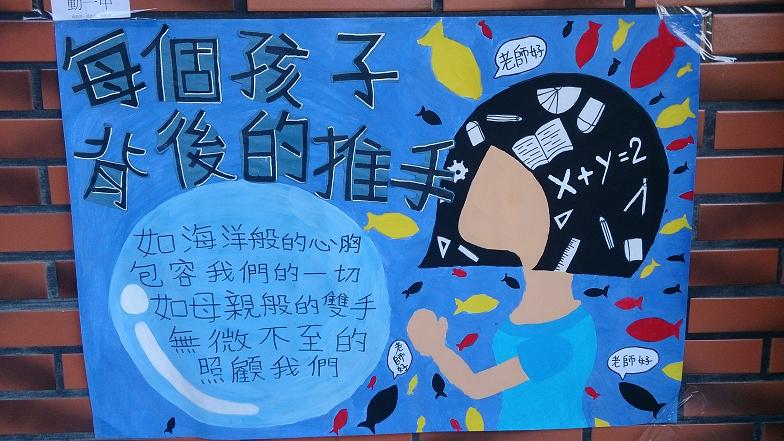 動一甲
每個孩子
背後的推手
如海洋般的心胸
包容我們的一切
如母親般的雙手
無微不至的
照顧我們
老師好
x+y=2
老師好
老師好